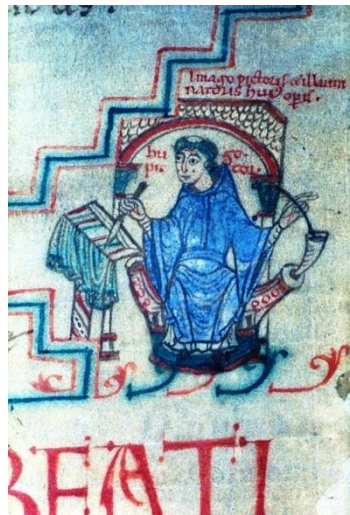 Imago pictoris & illumi
natoris huiꝰ op̄is.
hu go
pic tor.
BEATI